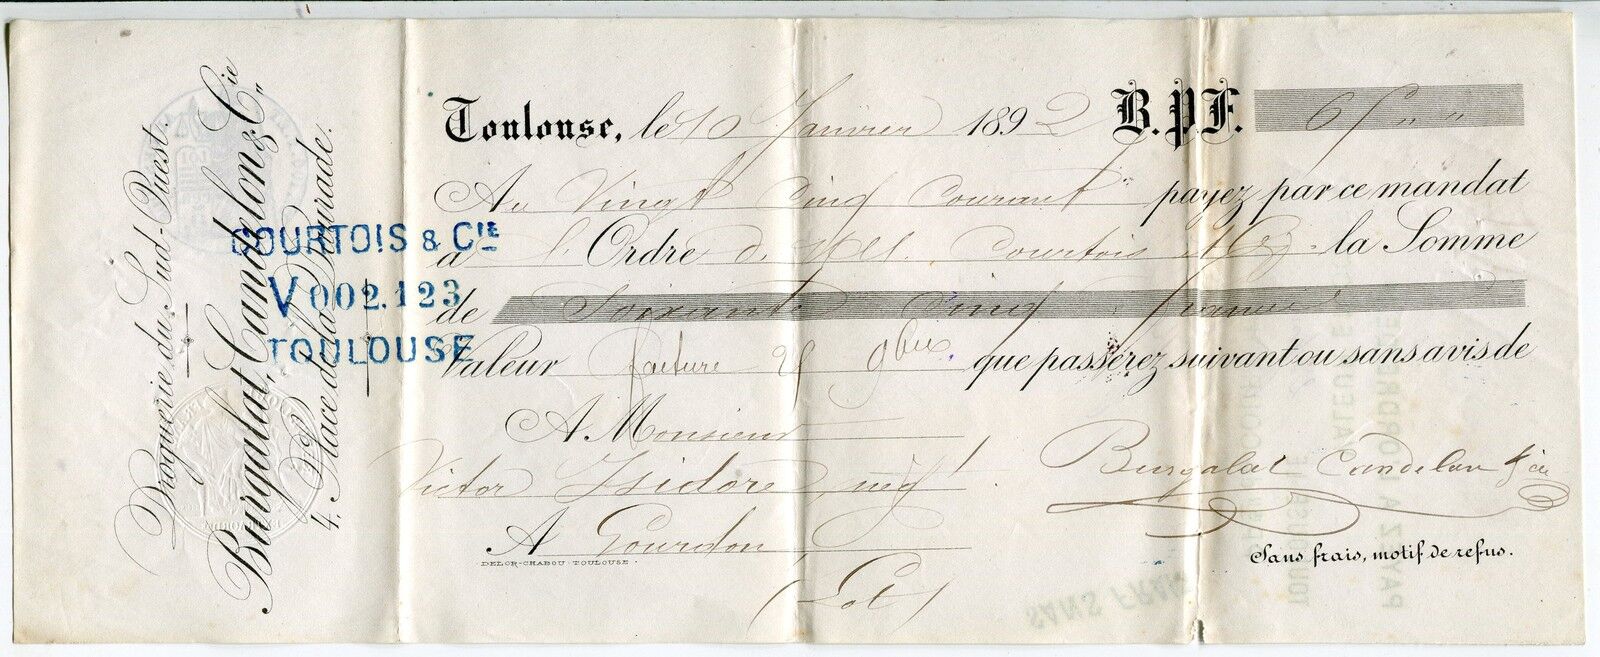 Droguerie du Sud-Ouest.
Burgalat, Candelon & Cie
4, Place de la Daurade.
COURTOIS & CIE
V 002.123
TOULOUSE
Toulouse, le 10 Janvier 1892 B.P.F. 65 " "
Au Vingt Cinq Courant payez par ce mandat
à l'Ordre de MM. Courtois & Cie la Somme
de Soixante Cinq francs
Valeur facture 25 9bre que passerez suivant ou sans avis de
A Monsieur
Victor Isidore négt
Burgalat Candelon & Cie
A Gourdon
Sans frais, motif de refus.
DELOR-CHABOU TOULOUSE
(Lot)
SANS FRAI